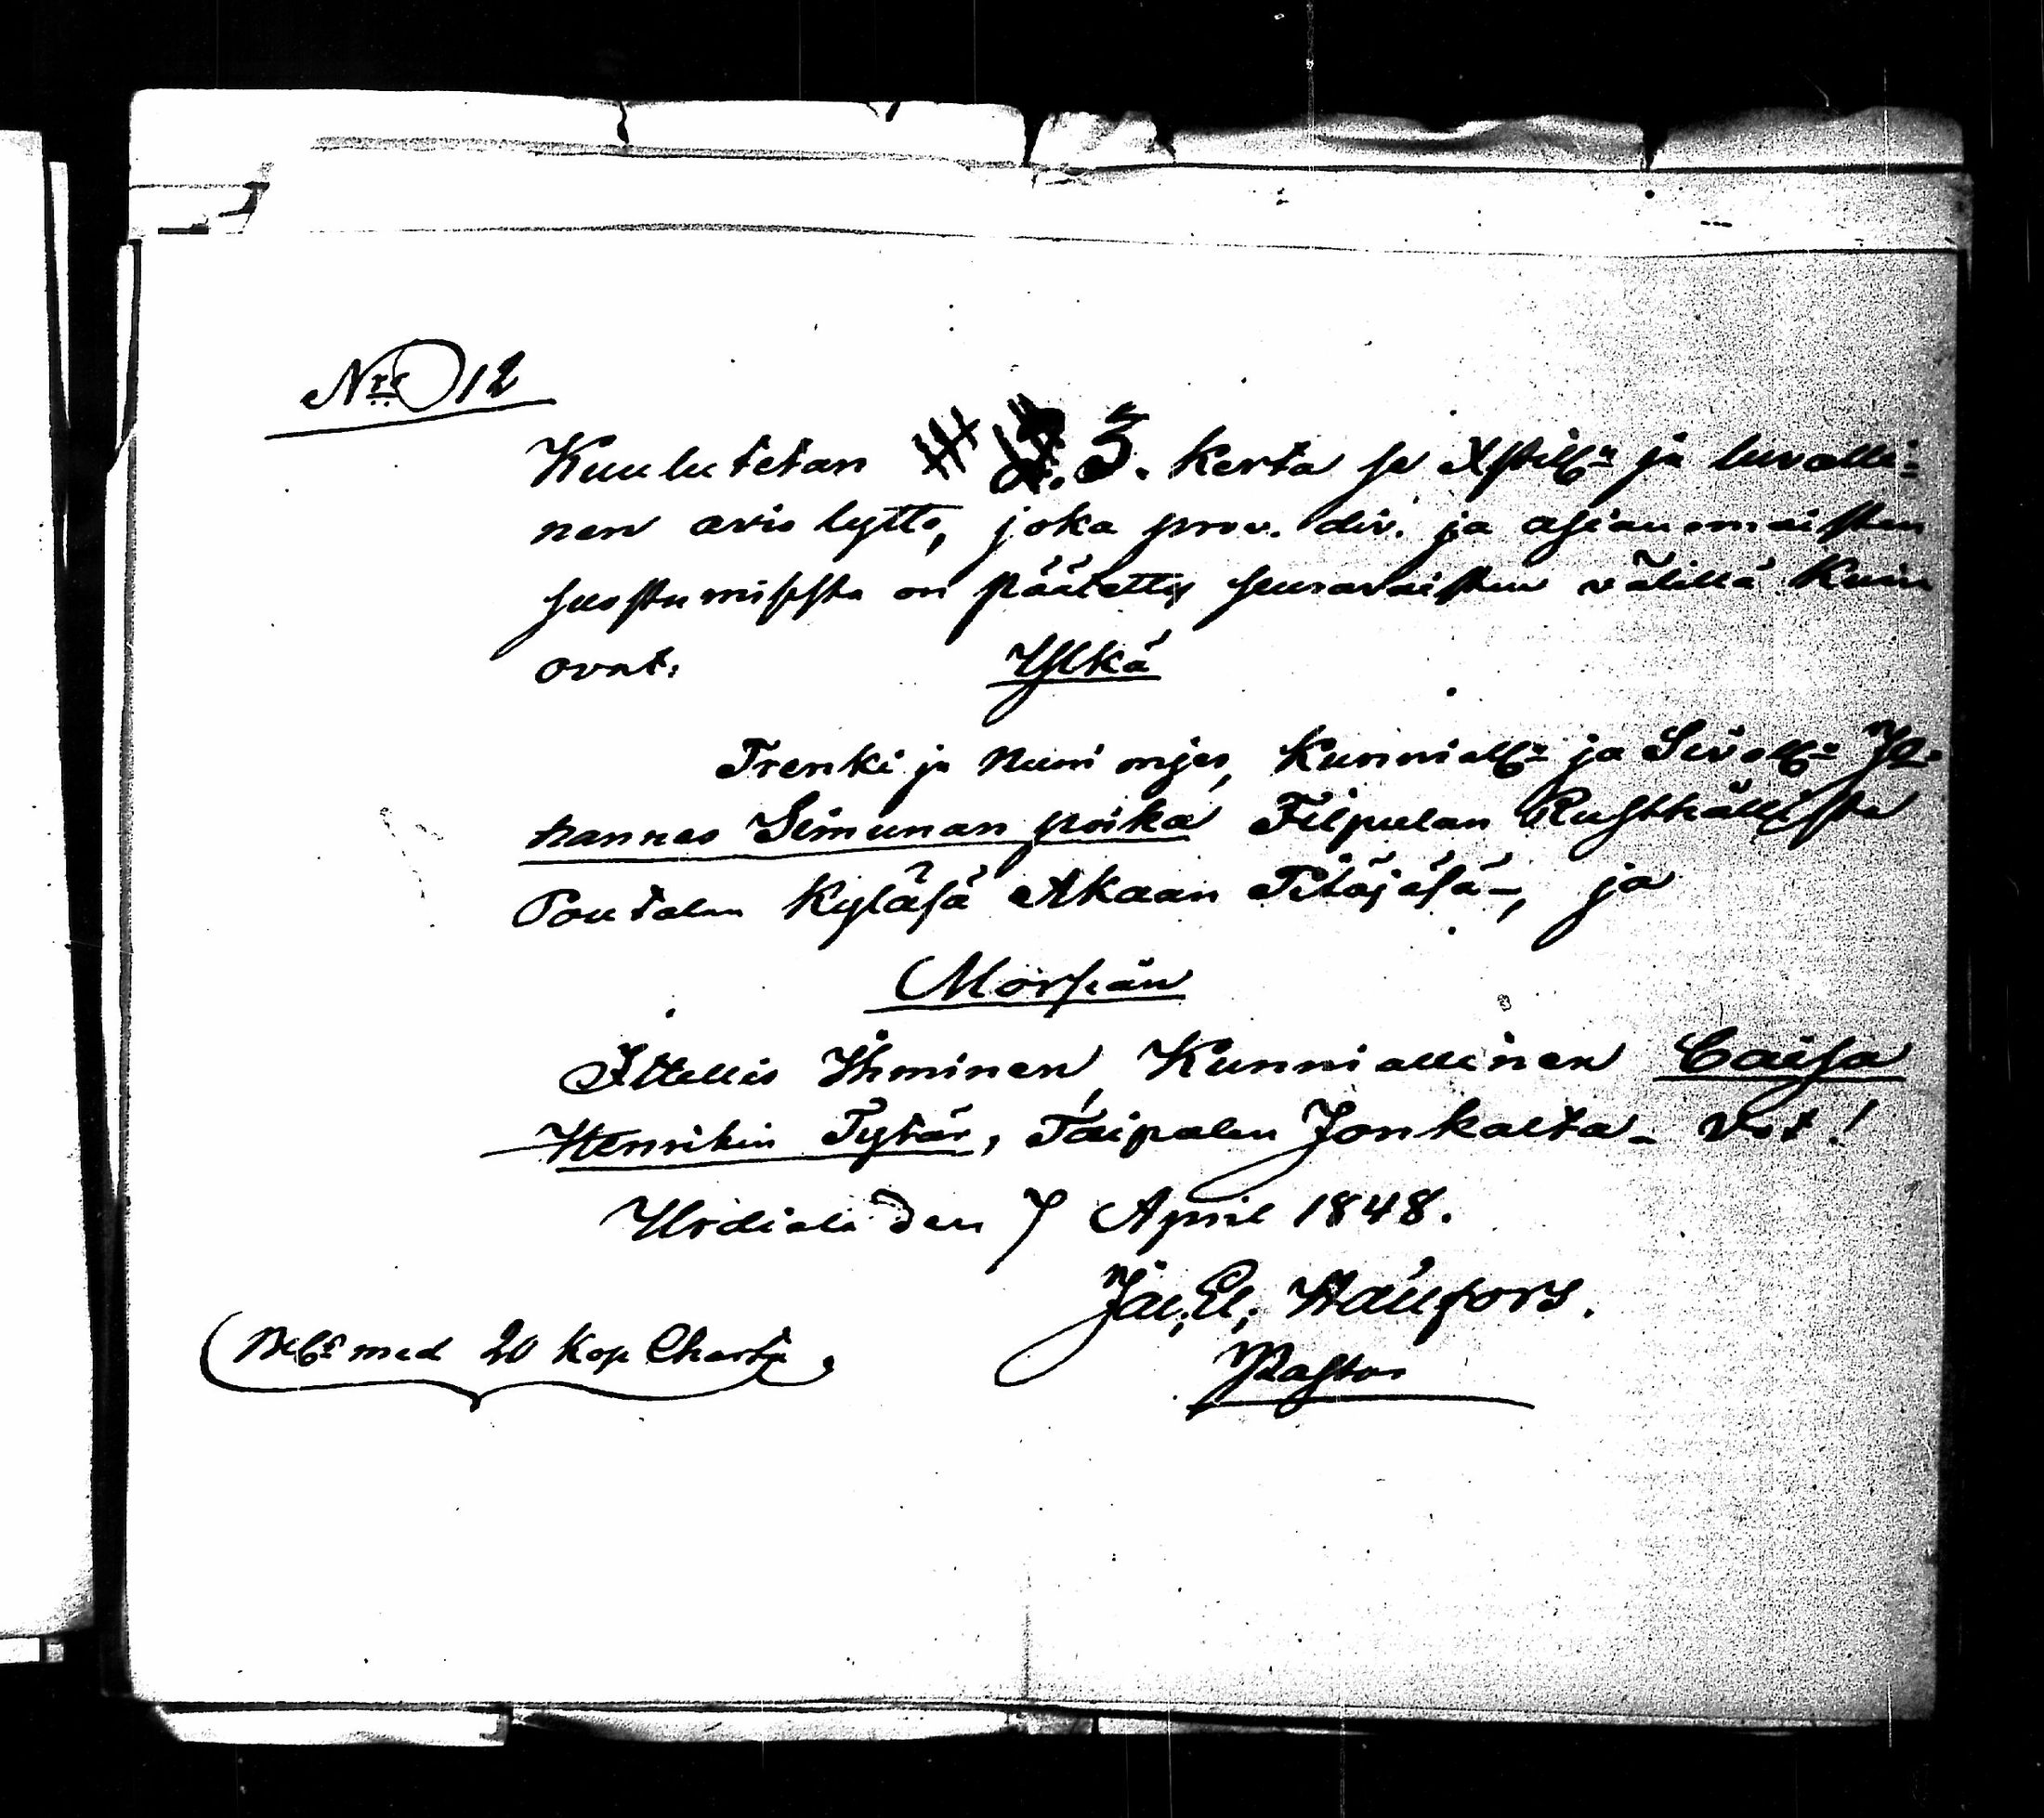 Nro 12
Kuulutetan 3. kerta se Xstill:n ja luvalli=
nen avio lytto, joka prov. div. ja asianomaisten
suostumisesta on päätetty seuravaisten välillä kuin
ovat: Ylkä
Trenki ja Nuori mjes, Kunniall:n ja Siväll:n Jo=
hannes Simunan poika Filpulan Rusthållista
Poutalan Kyläsä Akaan Pitäjäsä, ja
Morsian
Ittellis Ihminen, Kunniallinen Caisa
Henrikin Tytär, Taipalen Jonkalta - Vot!
Urdiala den 7 April 1848.
Jac. El. Hanfors.
Pastor
med 20 kop Charta